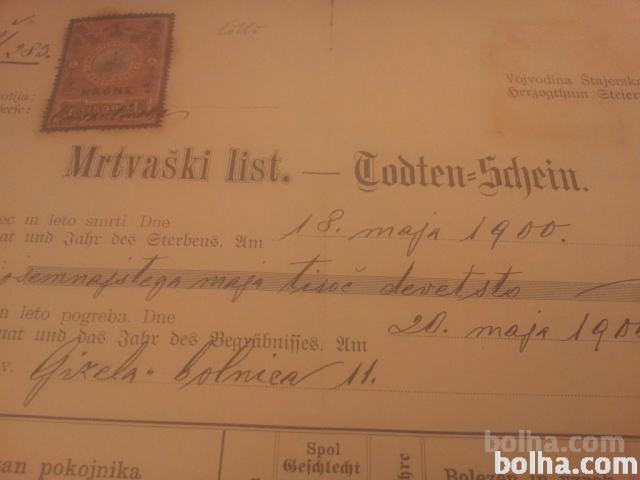 383.
KRONE
Vojvodina Štajerska
Herzogthum Steier
Mrtvaški list. — Todten=Schein.
ec in leto smrti. Dne
nat und Jahr des Sterbens. Am 18. maja 1900.
osemnajstega maja tisoč devetsto
in leto pogreba. Dne
nat und das Jahr des Begräbnisses. Am 20. maja 1900
v. Gizela-bolnica 11.
Spol
Geschlecht
tan pokojnika
Bolezen in vzrok
bolha.com
bolha.com